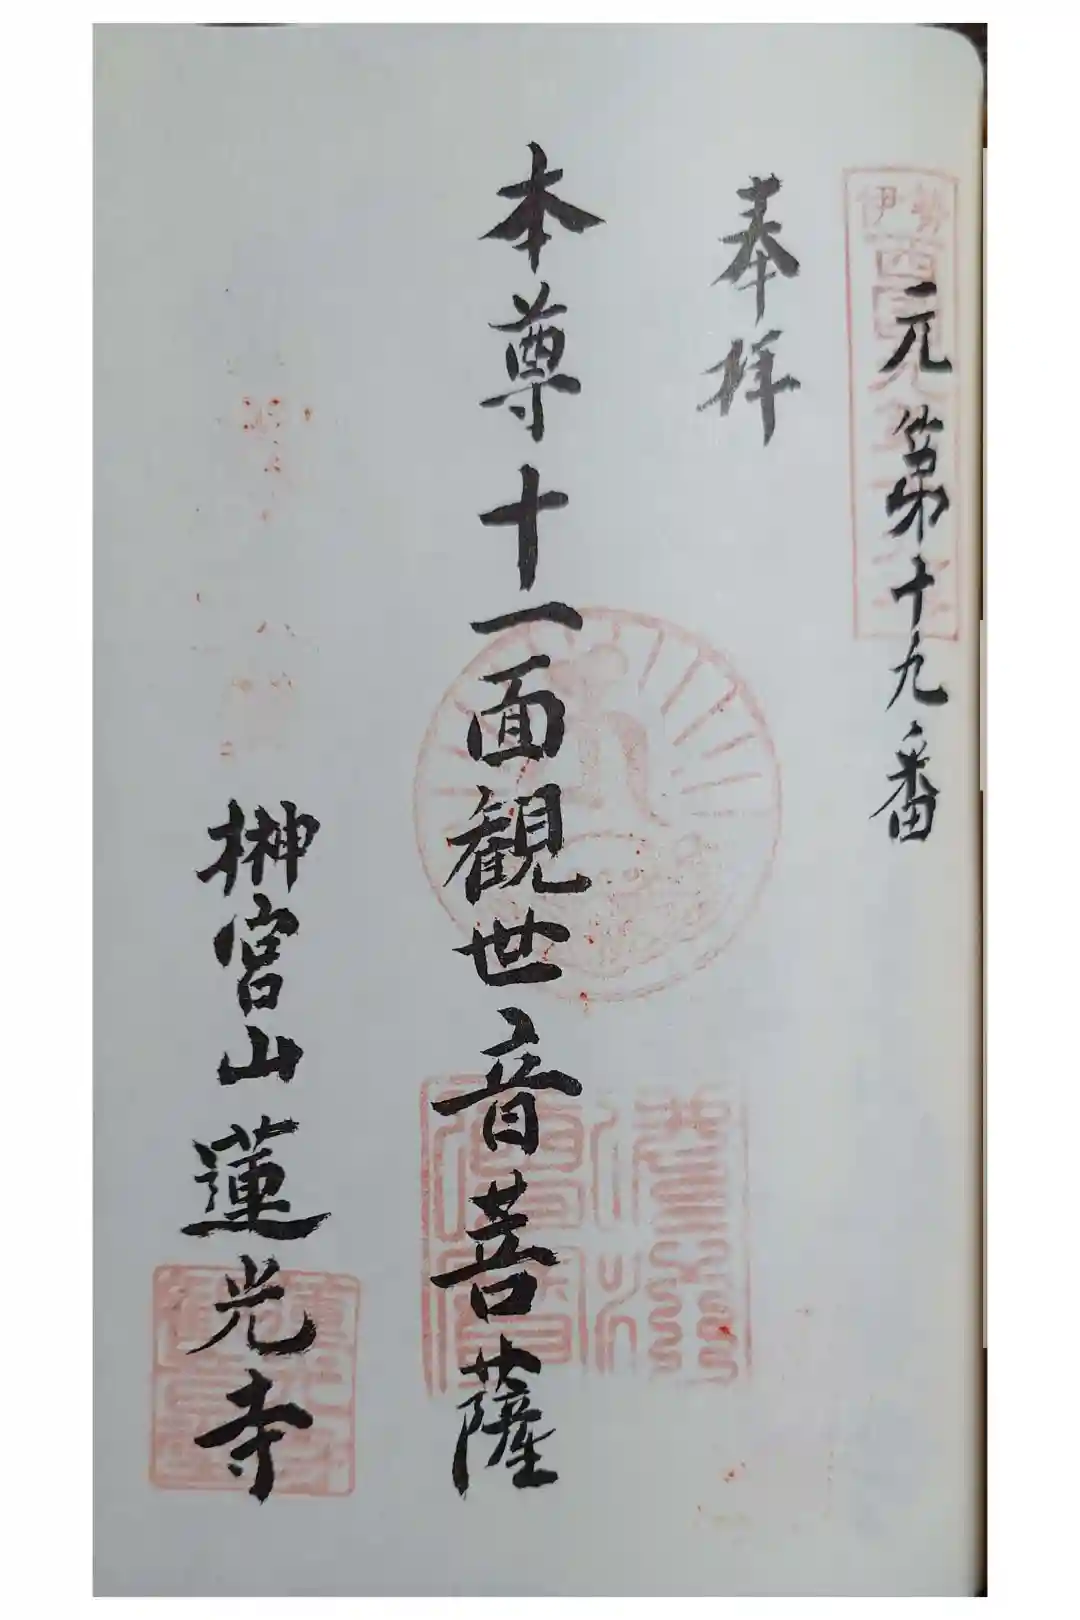 伊勢
元第十九番
奉拝
本尊十一面観世音菩薩
榊宮山蓮光寺